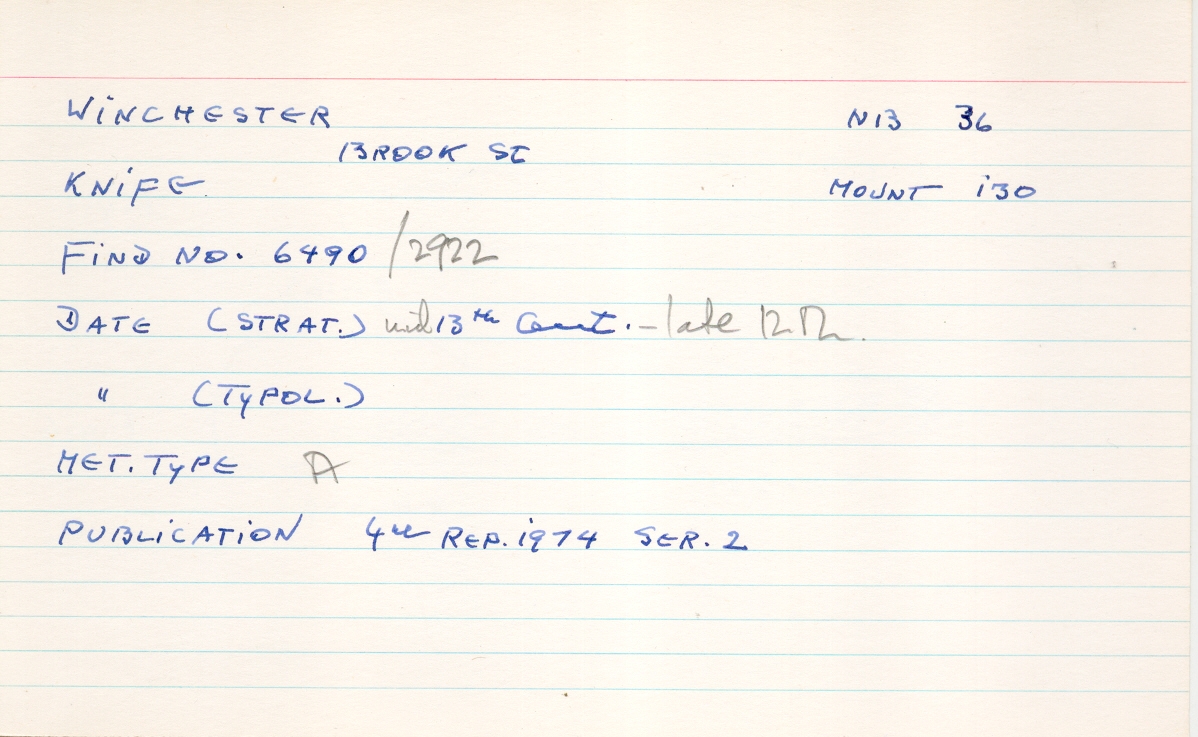 WINCHESTER N13 36
BROOK ST
KNIFE MOUNT 130
FIND NO. 6490 /2922
DATE (STRAT.) mid 13th Cent. – late 12th.
" (TYPOL.)
MET. TYPE A
PUBLICATION 4th REP. 1974 SER. 2